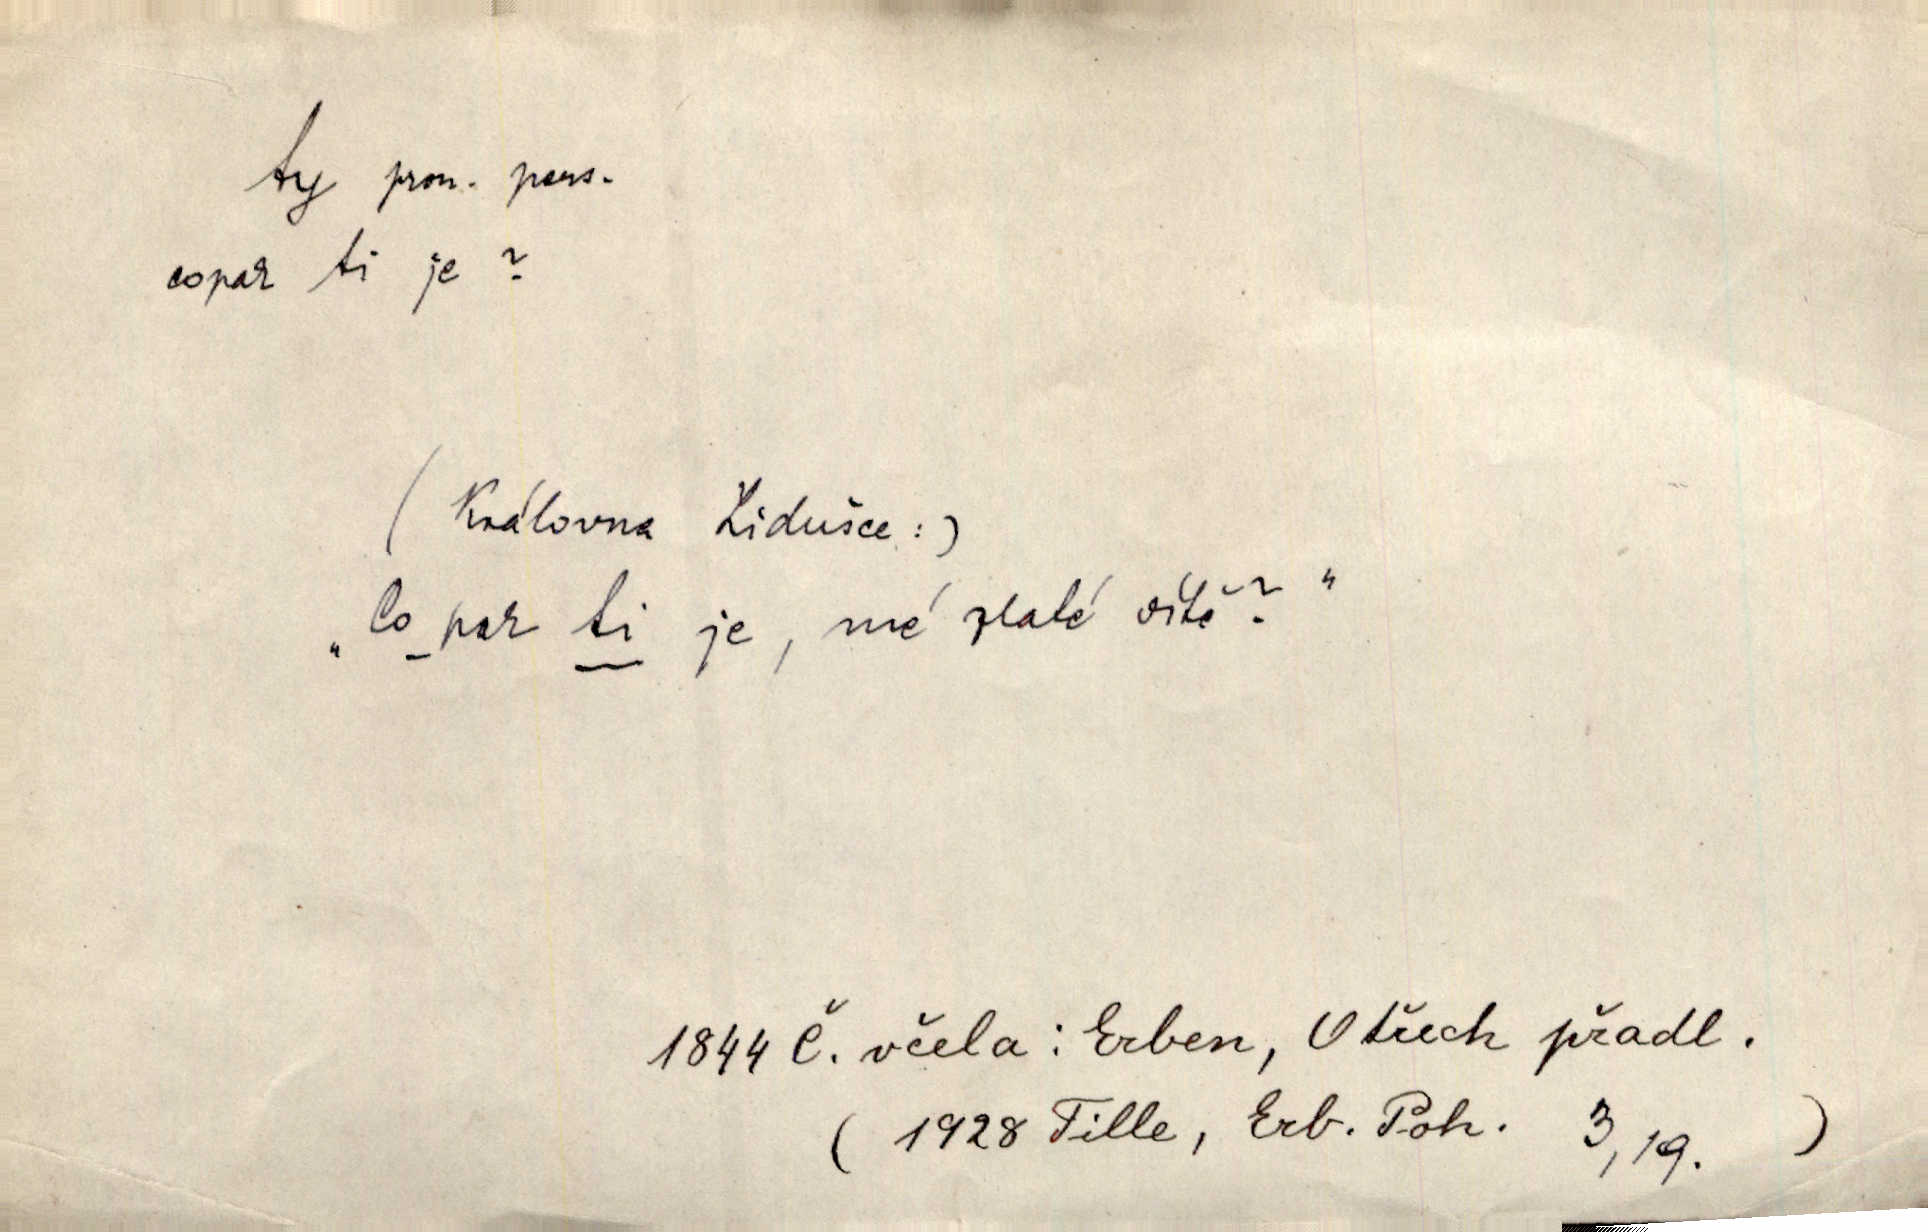 ty pron. pers.
copak ti je?
(Královna Lidušce:)
„Co pak ti je, mé zlaté dítě?“
1844 Č. včela: Erben, O třech přadl.
(1928 Tille, Erb. Poh. 3,19.)